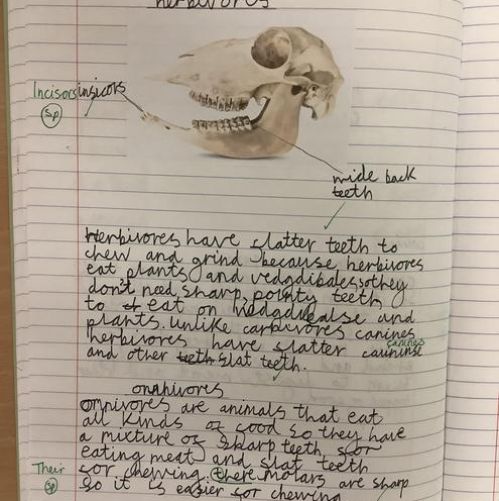 herbivores
Incisors insicors
Sp
wide back
teeth
Herbivores have flatter teeth to
chew and grind because herbivores
eat plants and vedgdibales, so they
don't need sharp, pointy teeth
to eat on
plants. unlike carnivores canines
canines
herbivores have flatter
and other teeth flat teeth.
omnivores
omnivores are animals that eat
all kinds of food so they have
a mixture of sharp teeth for
eating meat and flat teeth
Their for chewing. there molars are sharp
Sp
so it is easier for chewing